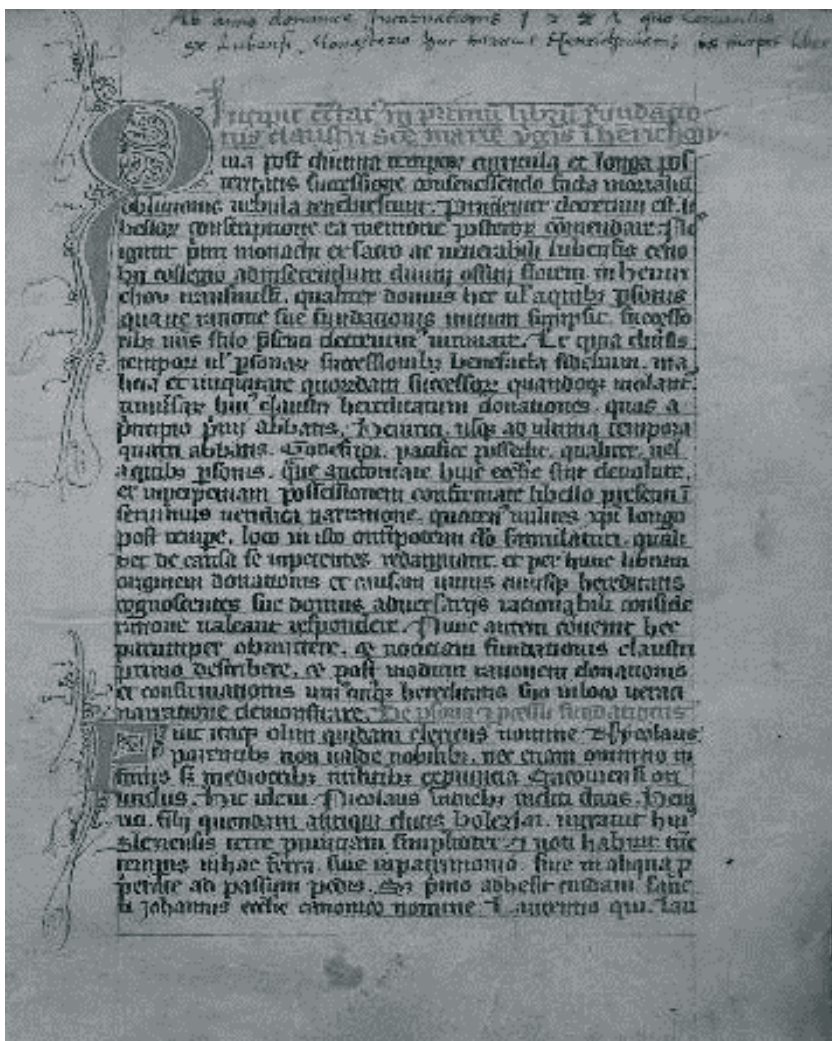 Ab anno dominice Incarnationis quo Conventus
ex Lubensi Monasterio huc Henrichow liber
Incipit in primū librū fundatio
nis claustri sce marie ỽgis i henrichow
uia post diuturna tempoꝝ curricula et longa pos
teritatis successione consenescendo facta mortaliū
obliuionis nebula tenebrescunt. Prudenter decretum est li
belloꝝ conscriptione ea memorie posteroꝝ cōmendare.
igitur pmi monachi ex sacro ac venerabili lubensis ceno
bii collegio ad inserendum diuini officii florem in henri
chow transmissi. qualiter domus hec ul' a quibꝫ psonis
qua ue ratione sue fundationis initium sumpsit. successo
ribꝫ suis stilo psenti decreuerunt intimare. Et quia diuisis
tempoꝝ ul' psonaꝝ successionibꝫ benefacta fidelium. ma
licia et iniquitate quorundam successoꝝ quandoqꝫ uiolant'.
uniuersas hui' claustri hereditatum donationes. quas a
pncipio pmi abbatis. Heinrici. usqꝫ ad ultima tempora
quarti abbatis. Godefridi. pacifice possedit. qualiter. uel
a quibꝫ psonis. que auctoritate huic ecclie sint deuolute.
et in perpetuam possessionem confirmate libello presenti i
seruimus ueridica narratione. quatenꝰ milites xpi longo
post tempe. loco in isto omipotenti do famulaturi. quali
bet de causa se inpetentes redarguant. et per hunc librum
originem donationis et causam unius cuiusqꝫ hereditatis
cognoscentes sue domus aduersariis racionabili conside
ratione ualeant respondere. Nunc autem conuenit hec
parumper obmittere. et noticiam fundationis claustri
primo describere. et post modum rationem donationis
et confirmationis uni' cuiusqꝫ hereditatis suo in loco ueraci
narratione demonstrare. De psona et pcessu fundationis
uit itaqꝫ olim quidam clericus nomine Nycolaus
parentibꝫ non ualde nobilibꝫ. nec etiam omnino in
fimis sꝫ mediocribꝫ militibꝫ ex puincia Cracouiensi ori
undus. Hic idem. Nicolaus diebꝫ incliti ducis. Hein
rici. filij quondam antiqui ducis bolezlai. intrauit hui'
slesiensis terre puinciam simpliciter. et non habuit tūc
tempus in hac terra. siue in patrimonio. siue in aliqua p
prietate ad passum pedis. Sꝫ pmo adhesit cuidam sanc
ti Johannis ecclie canonico nomine Laurentio qui. Lau